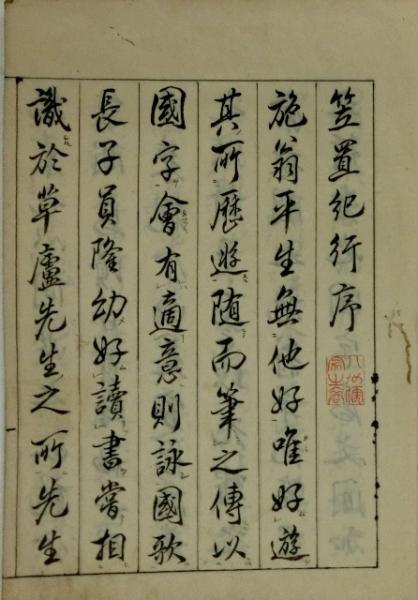 笠置紀行序
施翁平生無他好唯好遊
其所歷遊随而筆之傳以
國字會有適意則詠國歌
長子員隆幼好讀書嘗相
識於草廬先生之所先生